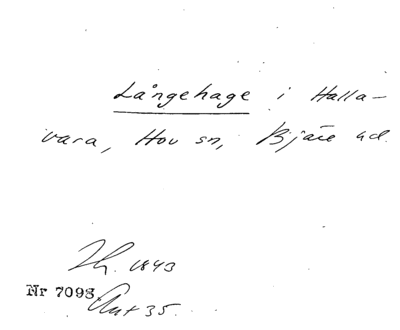 Långehage i Halla-
vara, Hov sn, Bjäre hd.
Th. 1843
Nr 7098
Ant 35.